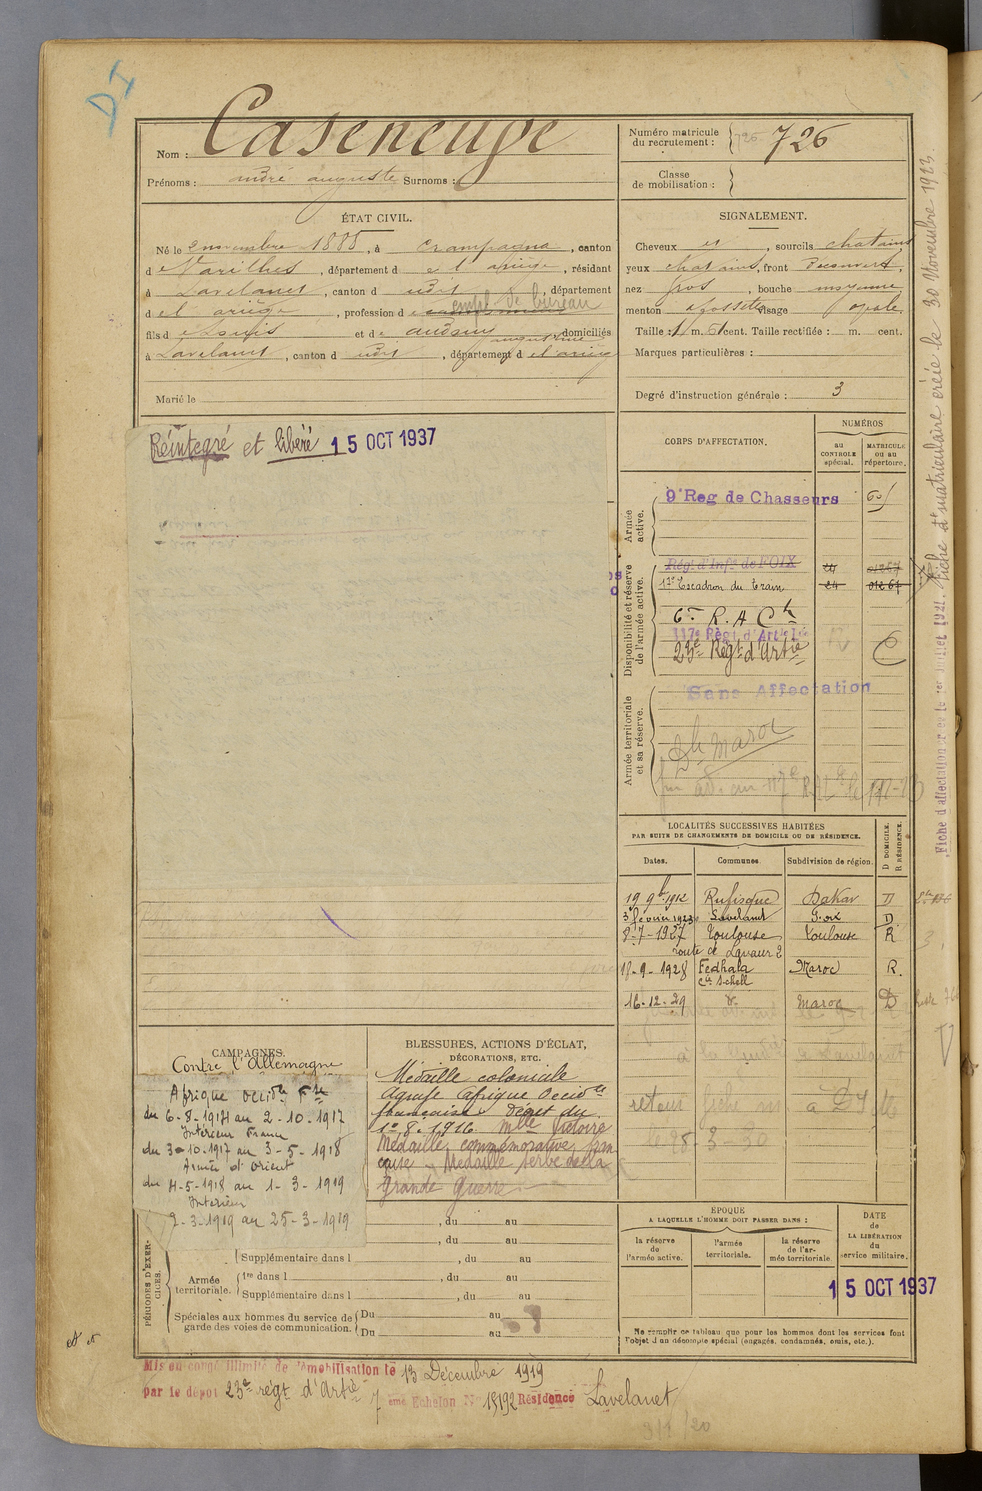 DI
Nom : Caseneuve
Prénoms : andré auguste Surnoms :
Numéro matricule
du recrutement : 726 726
Classe
de mobilisation :
ÉTAT CIVIL.
Né le 2 novembre 1885, à Crampagna, canton
d e Varilhes, département d e l'ariège, résidant
à Lavelanet, canton d udit, département
d e l'ariège, profession d empl. de bureau
fils d e Louis et d e audouy augustine, domiciliés
à Lavelanet, canton d udit, département d e l'arièg
Marié le
SIGNALEMENT.
Cheveux et, sourcils chatains
yeux chatains, front découvert,
nez gros, bouche moyenne
menton a fossette visage ovale.
Taille : 1 m. 61 cent. Taille rectifiée : m. cent.
Marques particulières :
Degré d'instruction générale : 3
Réintegré et libéré 15 OCT 1937
CORPS D'AFFECTATION.
NUMÉROS
au
CONTROLE
spécial.
MATRICULE
ou au
répertoire.
Armée
active.
9e Reg de Chasseurs
Disponibilité et réserve
de l'armée active.
Régt d'Infie de FOIX 01267
17e Escadron du Train 24 01267
6e R. A Ch
117e Régt d'Artie
23e Régt d'Artie
Armée territoriale
et sa réserve.
Sans Affectation
Dh Maroc
LOCALITÉS SUCCESSIVES HABITÉES
PAR SUITE DE CHANGEMENTS DE DOMICILE OU DE RÉSIDENCE.
Dates. Communes Subdivision de région. D DOMICILE. R RÉSIDENCE.
19 9bre 1912 Rufisque Dakar D
3 février 1923 Lavelanet Foix D
8-7-1927 Toulouse Toulouse R
route de Lavaur 2
18-9-1928 Fedhala Maroc R.
Cie Schell
16-12-29 do Maroc D
retour fiche
le 28-3-30
CAMPAGNES.
Contre l'Allemagne
Afrique occidle Fse
du 6-8-1914 au 2-10-1917
Intérieur France
du 3-10-1917 au 3-5-1918
Armée d'Orient
du 4-5-1918 au 1-3-1919
Interieur
2-3-1919 au 25-3-1919
BLESSURES, ACTIONS D'ÉCLAT,
DÉCORATIONS, ETC.
Médaille coloniale
Agrafe Afrique Occidle
française Décret du
1er 8.1916. Mlle Victoire
Médaille commémorative fran
çaise Médaille serbe de la
Grande Guerre
PÉRIODES D'EXER-
CICES.
, du au
, du au
Supplémentaire dans l , du au
Armée
territoriale.
1re dans l , du au
Supplémentaire dans l , du au
Spéciales aux hommes du service de
garde des voies de communication.
Du au
Du au
ÉPOQUE
A LAQUELLE L'HOMME DOIT PASSER DANS :
la réserve
de
l'armée active.
l'armée
territoriale.
la réserve
de l'ar-
mée territoriale.
DATE
de
LA LIBÉRATION
du
service militaire.
15 OCT 1937
Ne remplir ce tableau que pour les hommes dont les services font
l'objet d'un décompte spécial (engagés, condamnés, omis, etc.).
Mis en congé illimité de démobilisation le 13 Décembre 1919
par le dépôt 23e régt d'Artie
7 ème Echelon No 15192 Résidence Lavelanet
3/1/20
Fiche d'affectation créée le 1er Juillet 1921. Fiche de matriculaire créée le 30 Novembre 1923